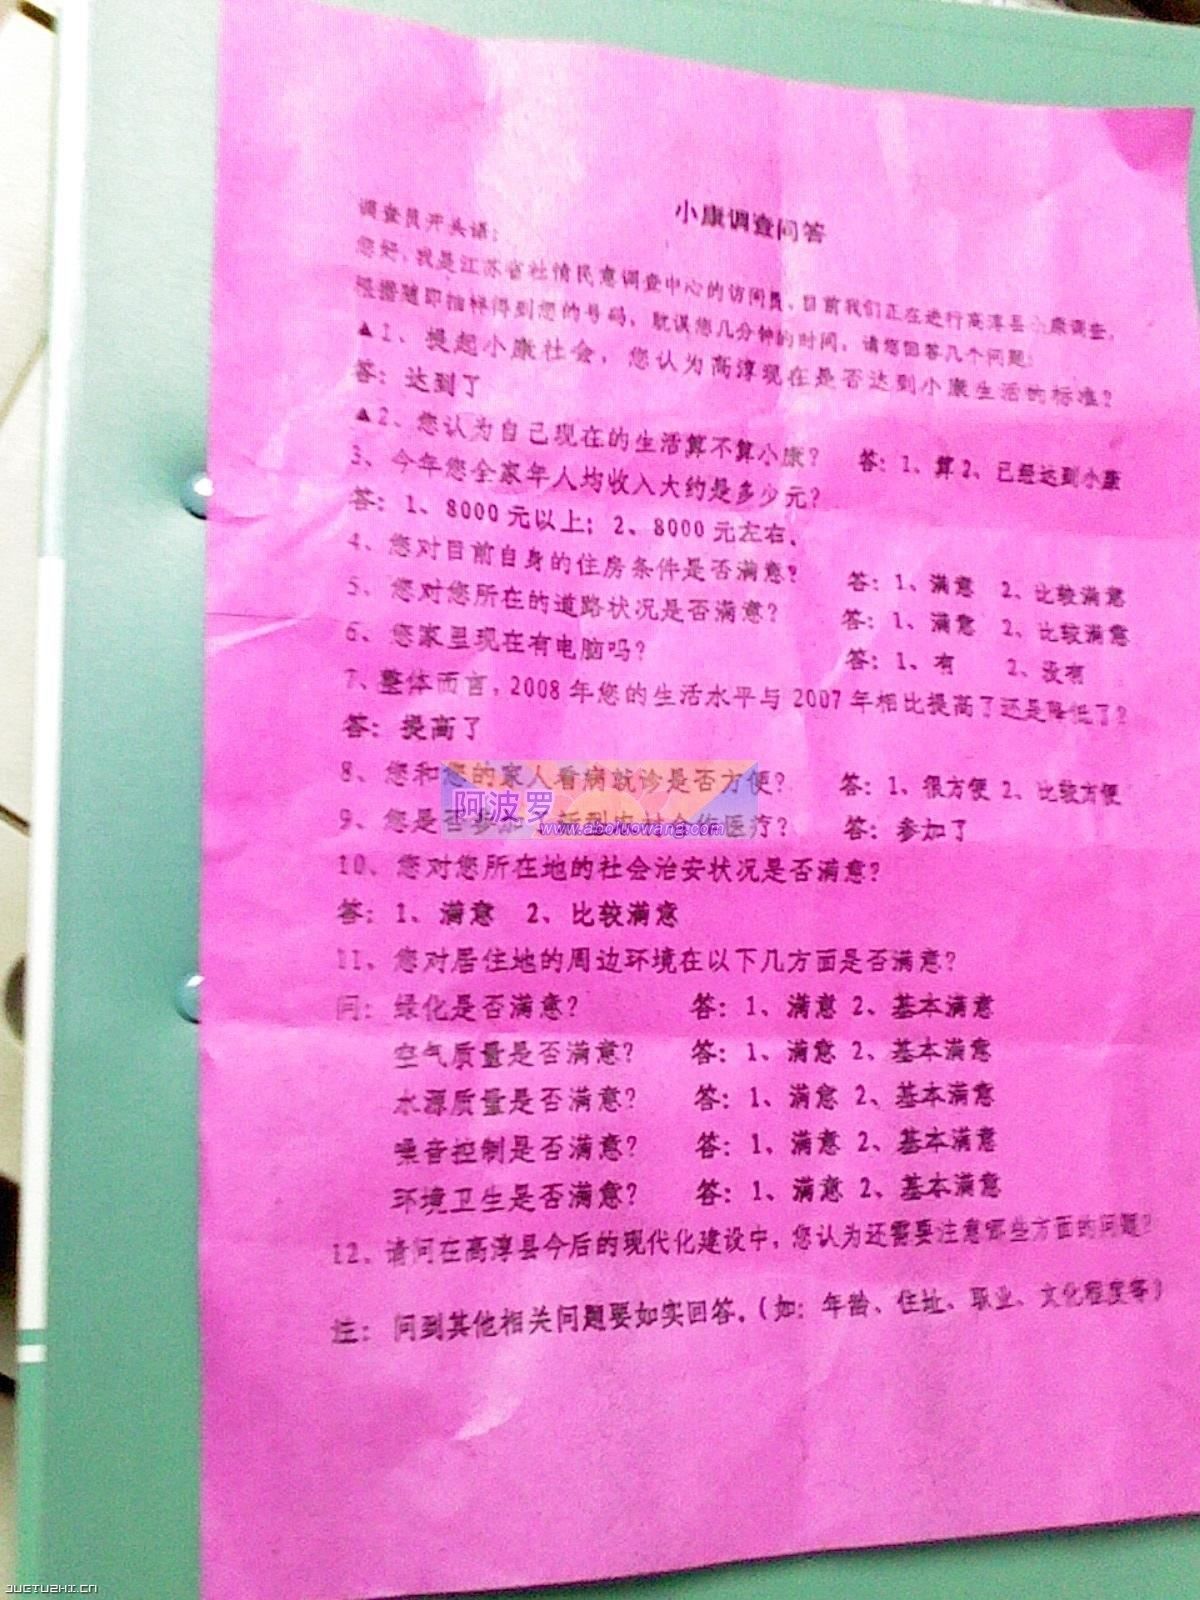 小康调查问答
调查员开头语：
您好，我是江苏省社情民意调查中心的访问员，目前我们正在进行高淳县小康调查，
根据随即抽样得到您的号码，耽误您几分钟的时间，请您回答几个问题：
▲1、提起小康社会，您认为高淳现在是否达到小康生活的标准？
答：达到了
▲2、您认为自己现在的生活算不算小康？ 答：1、算 2、已经达到小康
3、今年您全家年人均收入大约是多少元？
答：1、8000元以上；2、8000元左右、
4、您对目前自身的住房条件是否满意？ 答：1、满意 2、比较满意
5、您对您所在的道路状况是否满意？ 答：1、满意 2、比较满意
6、您家里现在有电脑吗？ 答：1、有 2、没有
7、整体而言，2008年您的生活水平与2007年相比提高了还是降低了？
答：提高了
8、您和您的家人看病就诊是否方便？ 答：1、很方便 2、比较方便
阿波罗
www.aboluowang.com
9、您是否参加了新型农村合作医疗？ 答：参加了
10、您对您所在地的社会治安状况是否满意？
答：1、满意 2、比较满意
11、您对居住地的周边环境在以下几方面是否满意？
问：绿化是否满意？ 答：1、满意 2、基本满意
空气质量是否满意？ 答：1、满意 2、基本满意
水源质量是否满意？ 答：1、满意 2、基本满意
噪音控制是否满意？ 答：1、满意 2、基本满意
环境卫生是否满意？ 答：1、满意 2、基本满意
12、请问在高淳县今后的现代化建设中，您认为还需要注意哪些方面的问题？
注：问到其他相关问题要如实回答。（如：年龄、住址、职业、文化程度等）
JUETUZHI.CN